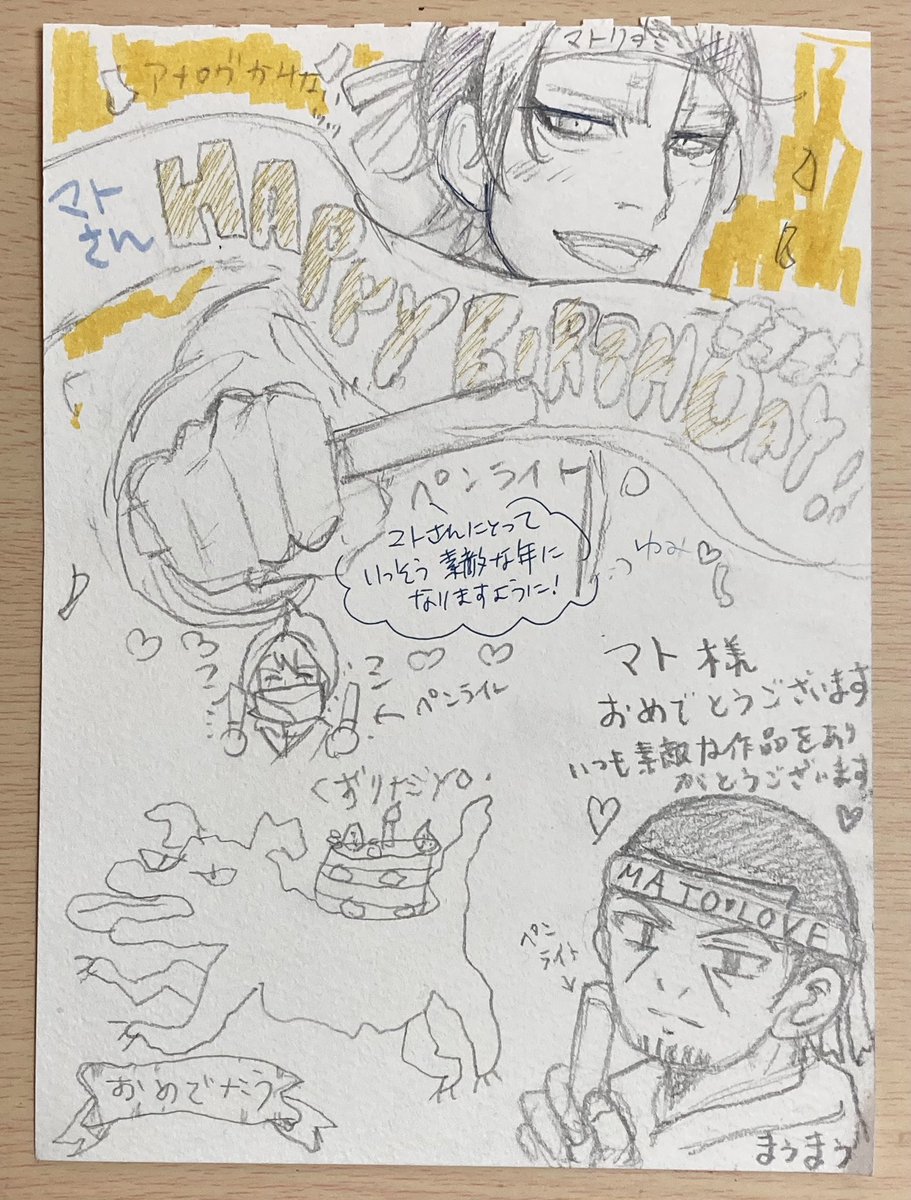 マトリョ
アナログかけな
マト
さん
HAPPY BIRTHDAY!!
ペンライト
マトさんにとって
いっそう素敵な年に
なりますように!
ゆみ♡
マト様
おめでとうございます
いつも素敵な作品をあり
がとうございます
←ペンライト
MATO♥LOVE
ペン
ライト
↓
おめでだう
まぅまぅ